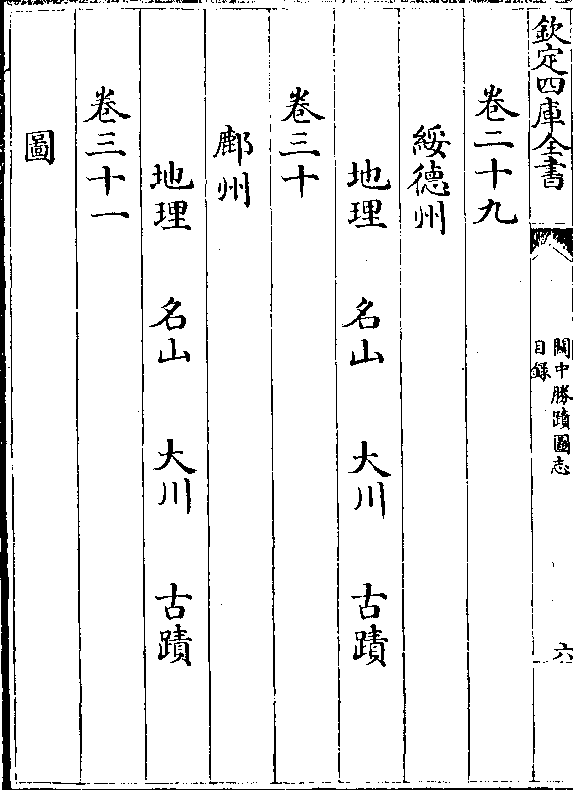 欽定四庫全書
關中勝蹟圖志
目録
六
卷二十九
綏德州
地理 名山 大川 古蹟
卷三十
鄜州
地理 名山 大川 古蹟
卷三十一
圖